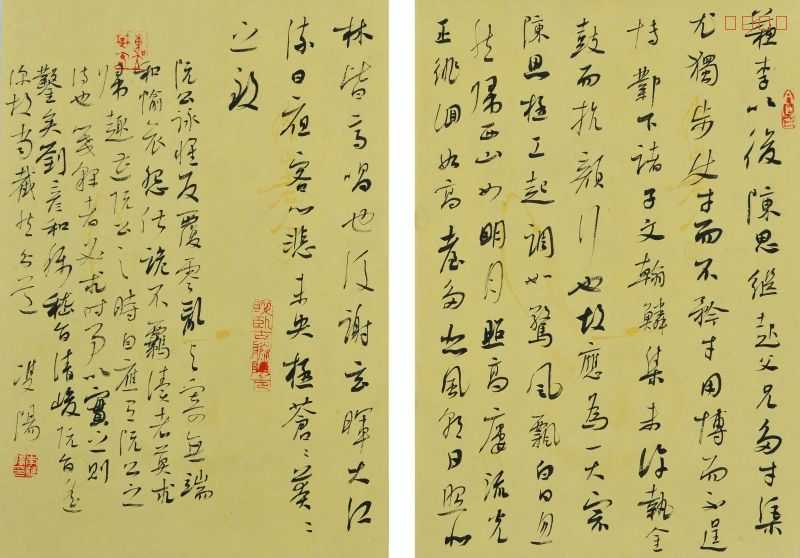 蘇李以後陳思继起父兄多才渠
尤獨步使才而不矜才用博而不逞
博鄴下諸子文翰鱗集未许執金
鼓而抗颜行也故應為一大宗
陳思極工起調如驚風飄白日忽
然歸西山如明月照高廔流光
正徘徊如高臺多悲風朝日照北
林皆高唱也後謝玄暉大江
流日夜客心悲未央極蒼々莽々
之致
阮公詠懷反覆零亂兴寄無端
和愉哀怨俶詭不羈讀者莫求
歸趣遭阮公之時自應有阮公之
诗也箋釋者必求时事以實之则
鑿矣劉彦和稱嵇旨清峻阮旨遥
深故當截然分道